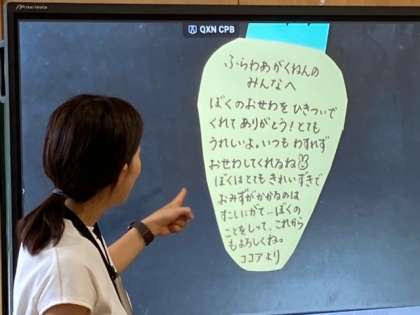 QXN CPB
ふらわあがくねんの
みんなへ
ぼくのおせわを ひきついで
くれて ありがとう！とても
うれしいよ。いつも わすれず
おせわしてくれるね
ぼくはとても きれいずきで
おみずがかかるのは
すこしにがて…ぼくの
ことをしって、これから
もよろしくね。
ココアより